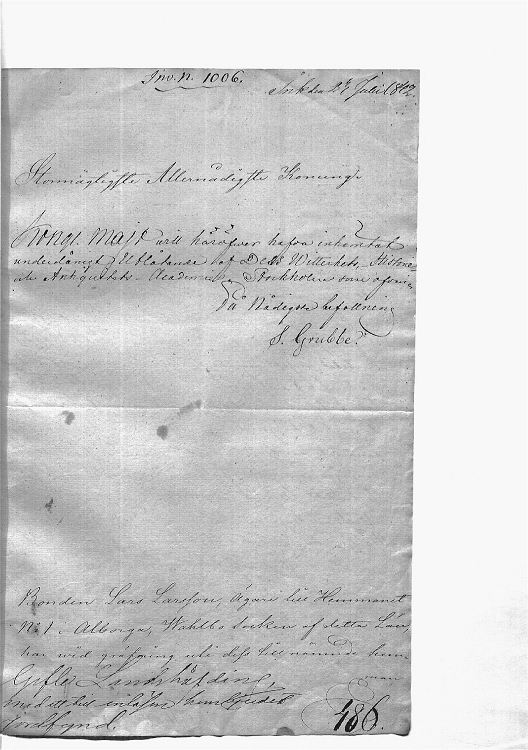 Inv. N. 1006.
Ink den 27 Julii 1842
Stormägtigste Allernådigste Konung!
Kongl. Maj:t will häröfwer hafva inhemtat
underdånigt Utlåtande af Dess Witterhets, Historie
och Antiquitets-Academie. Stockholm som ofwan
På Nådigste befallning
S. Grubbe.
Bonden Lars Larsson, ägare till Hemmanet
N:o 1. Alborga, Wahlbo Socken af detta Län,
har wid gräfning uti dess till nämnde hem-
man
Gefle Landshöfding
med ett till inlösen hembjudet
Jordfynd.
486.